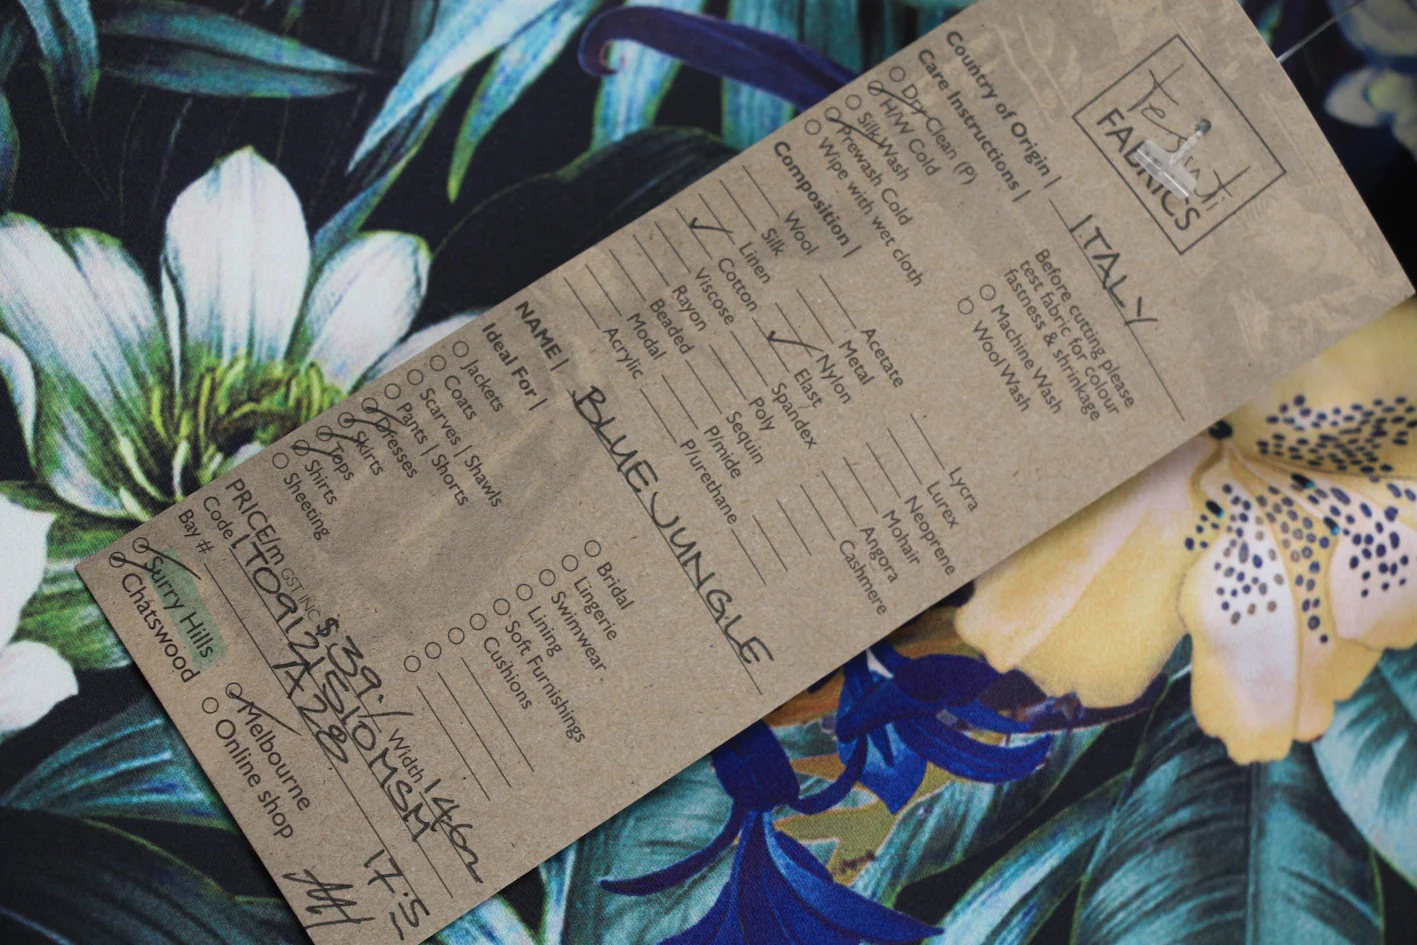 Tessuti
FABRICS
Country of Origin | ITALY
Care Instructions |
Dry Clean (P)
H/W Cold
Silk Wash
Prewash Cold
Wipe with wet cloth
Before cutting please
test fabric for colour
fastness & shrinkage
Machine Wash
Wool Wash
Composition |
Wool
Silk
Linen
✓ Cotton
Viscose
Rayon
Beaded
Modal
Acrylic
Acetate
Metal
Nylon
✓ Elast
Spandex
Poly
Sequin
P/mide
P/urethane
Lycra
Lurex
Neoprene
Mohair
Angora
Cashmere
NAME | BLUE JUNGLE
Ideal For |
Jackets
Coats
Scarves | Shawls
Pants | Shorts
Dresses
Skirts
Tops
Shirts
Sheeting
Bridal
Lingerie
Swimwear
Lining
Soft Furnishings
Cushions
PRICE/m GST INC $39./ Width 146
Code
Bay # A28 17.5
Surry Hills
Chatswood
Melbourne
Online shop